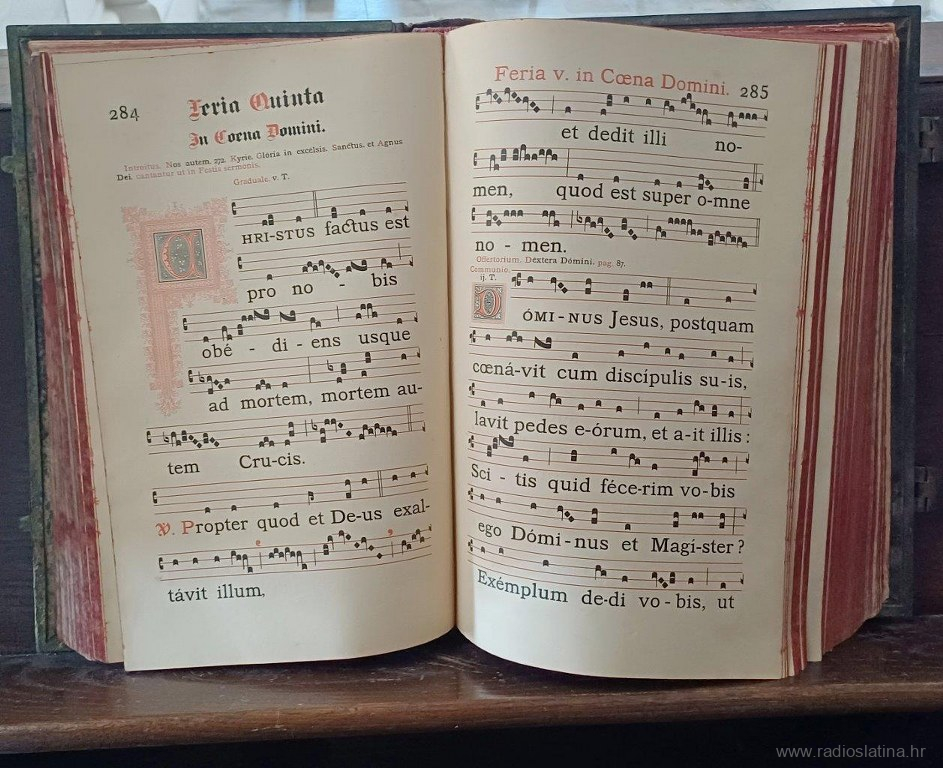 284
Feria Quinta
In Cœna Domini.
Introitus. Nos autem. 272. Kyrie. Glória in excelsis. Sanctus. et Agnus
Dei. cantantur ut in Festis
Graduale. v. T.
CHRI-STUS factus est
pro no - bis
obé - di - ens usque
ad mortem, mortem au-
tem Cru-cis.
℣. Propter quod et De-us exal-
távit illum,
Feria v. in Cœna Domini. 285
et dedit illi no-
men, quod est super o-mne
no - men.
Offertorium. Dextera Dómini. pag. 87.
Communio.
ij. T.
DÓMI-NUS Jesus, postquam
cœná-vit cum discípulis su-is,
lavit pedes e-órum, et a-it illis :
Sci - tis quid féce-rim vo-bis
ego Dómi-nus et Magí-ster ?
Exémplum de-di vo-bis, ut
www.radioslatina.hr